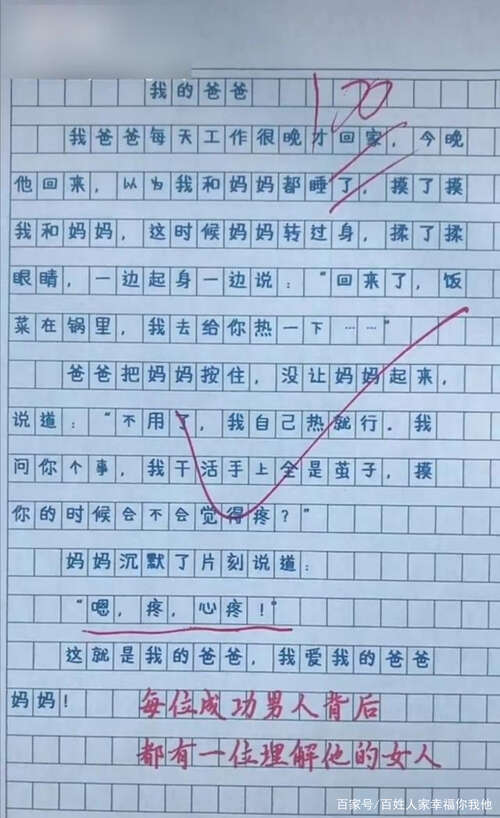 我的爸爸
100
我爸爸每天工作很晚才回家,今晚
他回来,以为我和妈妈都睡了,摸了摸
我和妈妈,这时候妈妈转过身,揉了揉
眼睛,一边起身一边说:“回来了,饭
菜在锅里,我去给你热一下……”
爸爸把妈妈按住,没让妈妈起来,
说道:“不用了,我自己热就行.我
问你个事,我干活手上全是茧子,摸
你的时候会不会觉得疼?”
妈妈沉默了片刻说道:
“嗯,疼,心疼!”
这就是我的爸爸,我爱我的爸爸
妈妈!
每位成功男人背后
都有一位理解他的女人
百家号/百姓人家幸福你我他